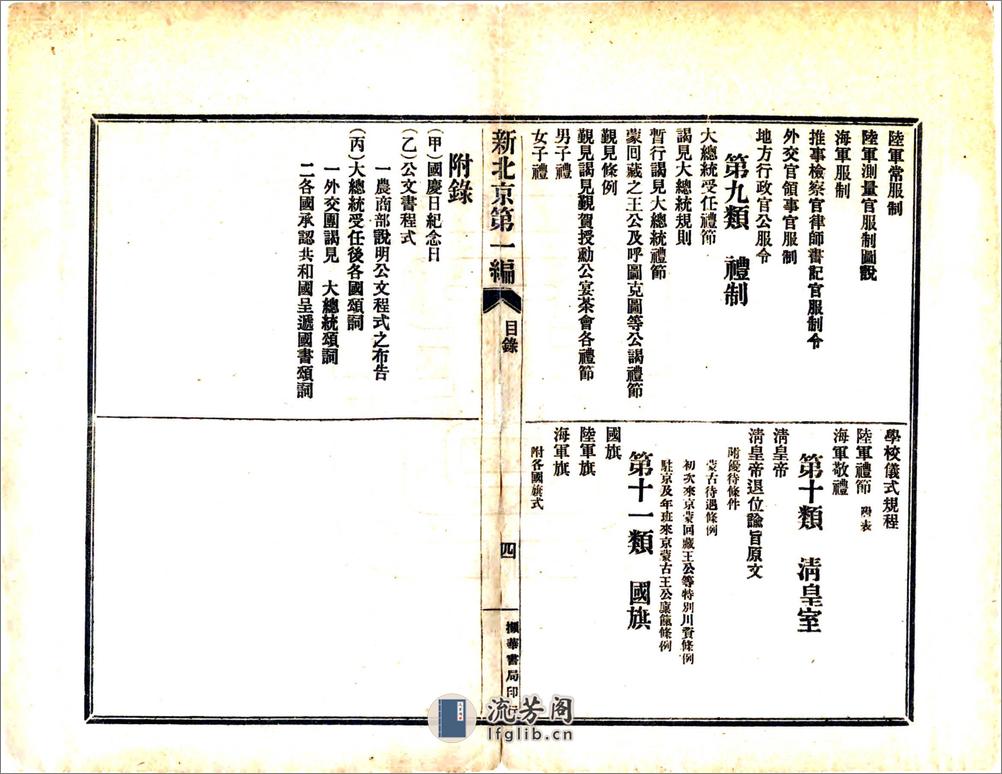 陸軍常服制
陸軍測量官服制圖說
海軍服制
推事檢察官律師書記官服制令
外交官領事官服制
地方行政官公服令
第九類　禮制
大總統受任禮節
謁見大總統規則
暫行謁見大總統禮節
蒙回藏之王公及呼圖克圖等公謁禮節
覲見條例
覲見謁見覲賀授勳公宴茶會各禮節
男子禮
女子禮
學校儀式規程
陸軍禮節　附表
海軍敬禮
第十類　淸皇室
淸皇帝
淸皇帝退位諭旨原文
附優待條件
蒙古待遇條例
初次來京蒙回藏王公等特別川資條例
駐京及年班來京蒙古王公廩餼條例
第十一類　國旗
國旗
陸軍旗
海軍旗
附各國旗式
新北京第一編
目錄
四
擷華書局印行
附錄
(甲)國慶日紀念日
(乙)公文書程式
一農商部說明公文程式之布告
(丙)大總統受任後各國頌詞
一外交團謁見　大總統頌詞
二各國承認共和國呈遞國書頌詞
流芳阁
lfglib.cn